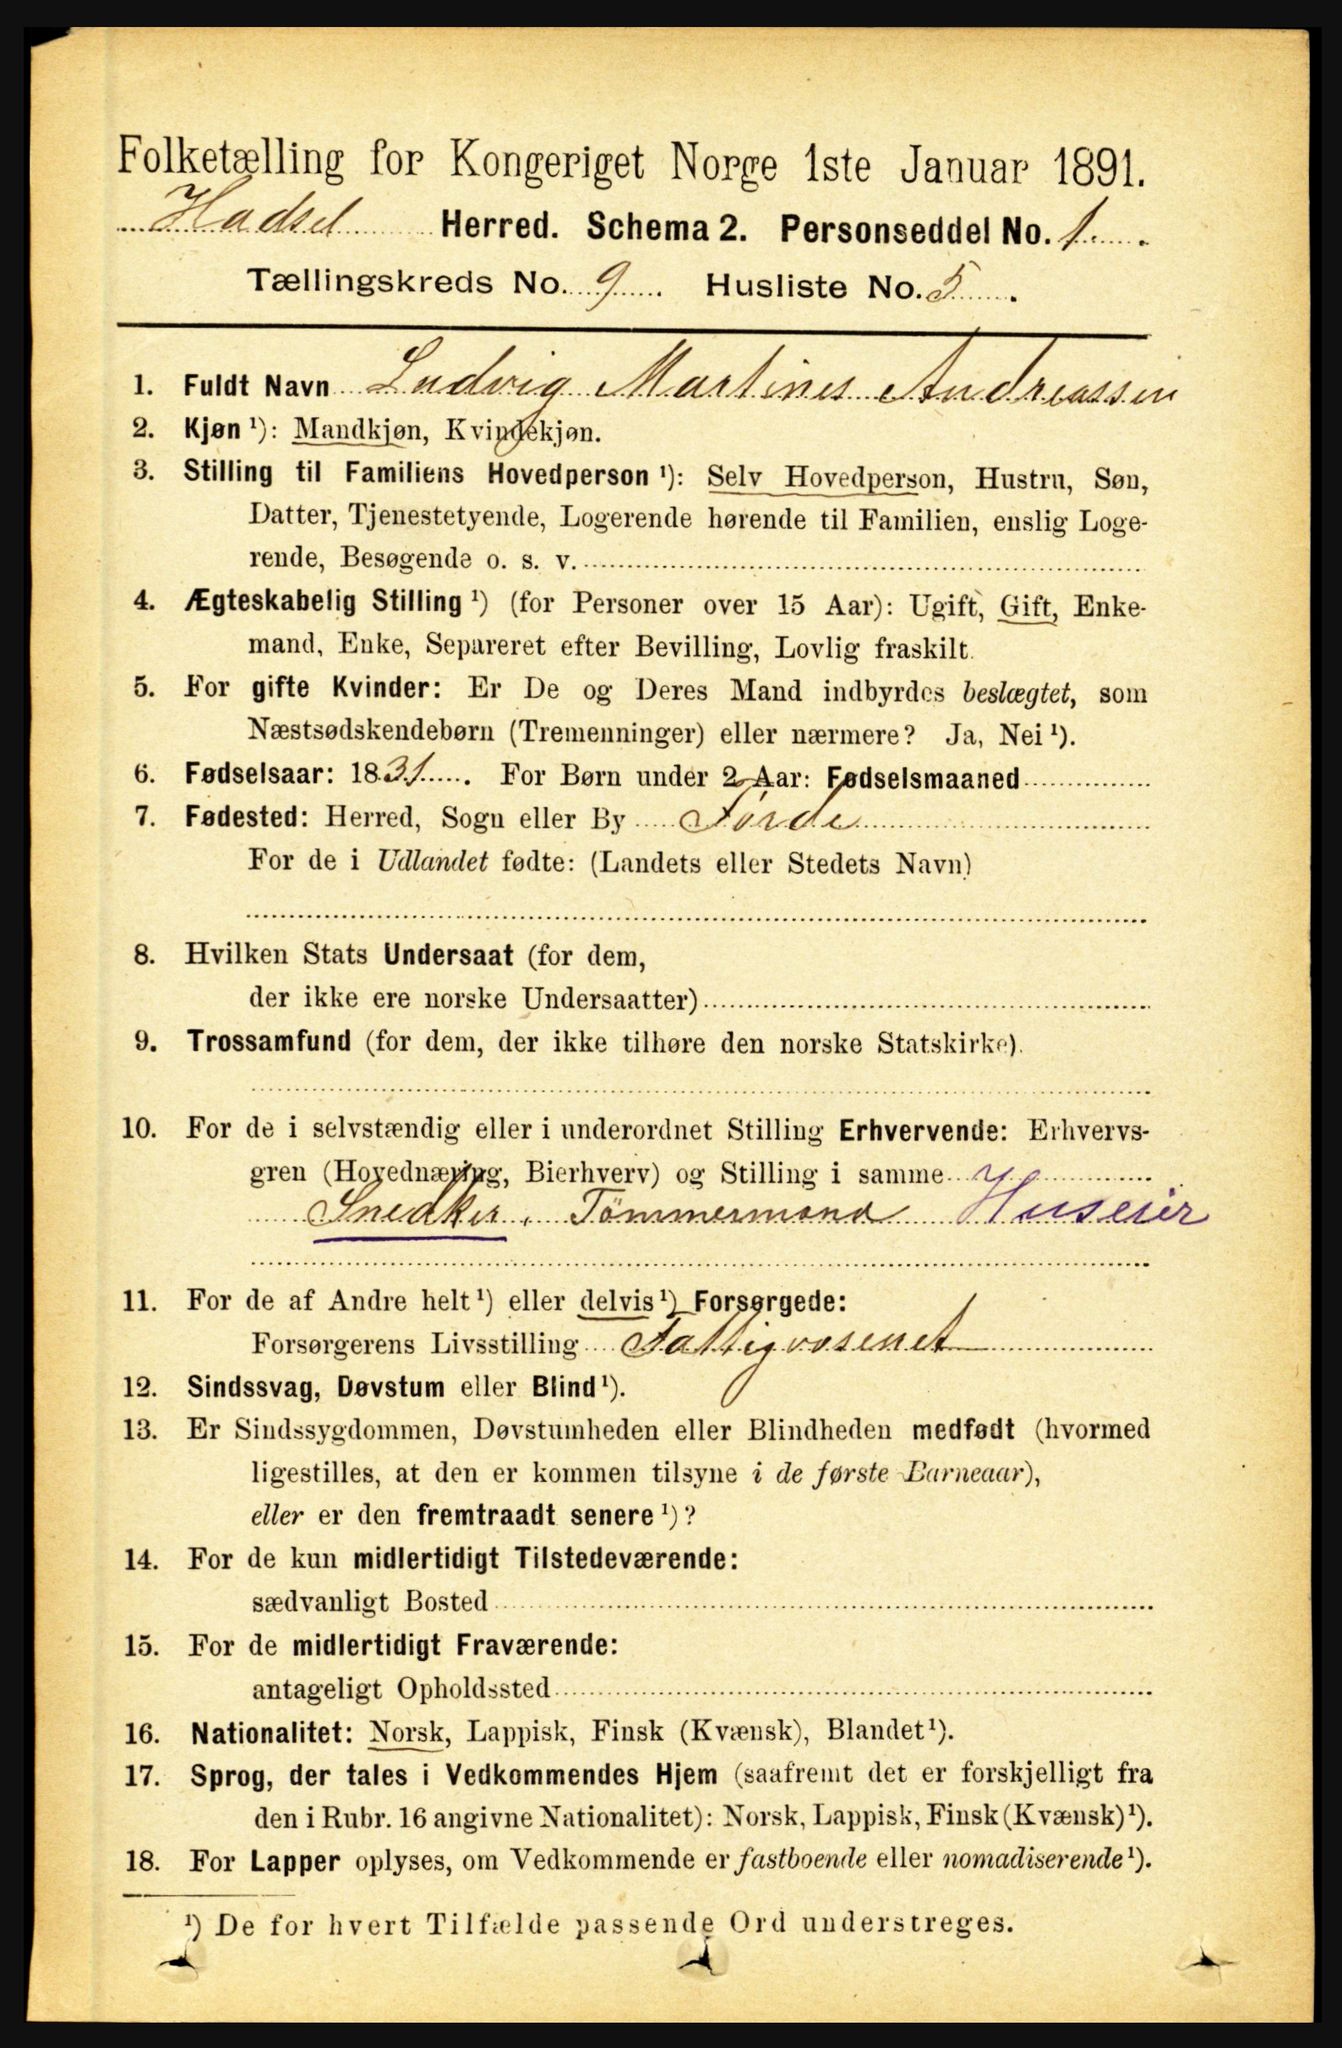 Folketælling for Kongeriget Norge 1ste Januar 1891.
Hadsel Herred. Schema 2. Personseddel No. 1.
Tællingskreds No. 9. Husliste No. 5.
1. Fuldt Navn Ludvig Martines Andreassen
2. Kjøn ¹): Mandkjøn, Kvindekjøn.
3. Stilling til Familiens Hovedperson ¹): Selv Hovedperson, Hustru, Søn,
Datter, Tjenestetyende, Logerende hørende til Familien, enslig Loge-
rende, Besøgende o. s. v.
4. Ægteskabelig Stilling ¹) (for Personer over 15 Aar): Ugift, Gift, Enke-
mand, Enke, Separeret efter Bevilling, Lovlig fraskilt.
5. For gifte Kvinder: Er De og Deres Mand indbyrdes beslægtet, som
Næstsødskendebørn (Tremenninger) eller nærmere? Ja, Nei ¹).
6. Fødselsaar: 1831. For Børn under 2 Aar: Fødselsmaaned
7. Fødested: Herred, Sogn eller By Förde
For de i Udlandet fødte: (Landets eller Stedets Navn)
8. Hvilken Stats Undersaat (for dem,
der ikke ere norske Undersaatter)
9. Trossamfund (for dem, der ikke tilhøre den norske Statskirke).
10. For de i selvstændig eller i underordnet Stilling Erhvervende: Erhvervs-
gren (Hovednæring, Bierhverv) og Stilling i samme
Snedker, Tömmermand Huseier
11. For de af Andre helt ¹) eller delvis ¹) Forsørgede:
Forsørgerens Livsstilling Fattigvæsenet
12. Sindssvag, Døvstum eller Blind ¹).
13. Er Sindssygdommen, Døvstumheden eller Blindheden medfødt (hvormed
ligestilles, at den er kommen tilsyne i de første Barneaar),
eller er den fremtraadt senere ¹)?
14. For de kun midlertidigt Tilstedeværende:
sædvanligt Bosted
15. For de midlertidigt Fraværende:
antageligt Opholdssted
16. Nationalitet: Norsk, Lappisk, Finsk (Kvænsk), Blandet ¹).
17. Sprog, der tales i Vedkommendes Hjem (saafremt det er forskjelligt fra
den i Rubr. 16 angivne Nationalitet): Norsk, Lappisk, Finsk (Kvænsk) ¹).
18. For Lapper oplyses, om Vedkommende er fastboende eller nomadiserende ¹).
¹) De for hvert Tilfælde passende Ord understreges.